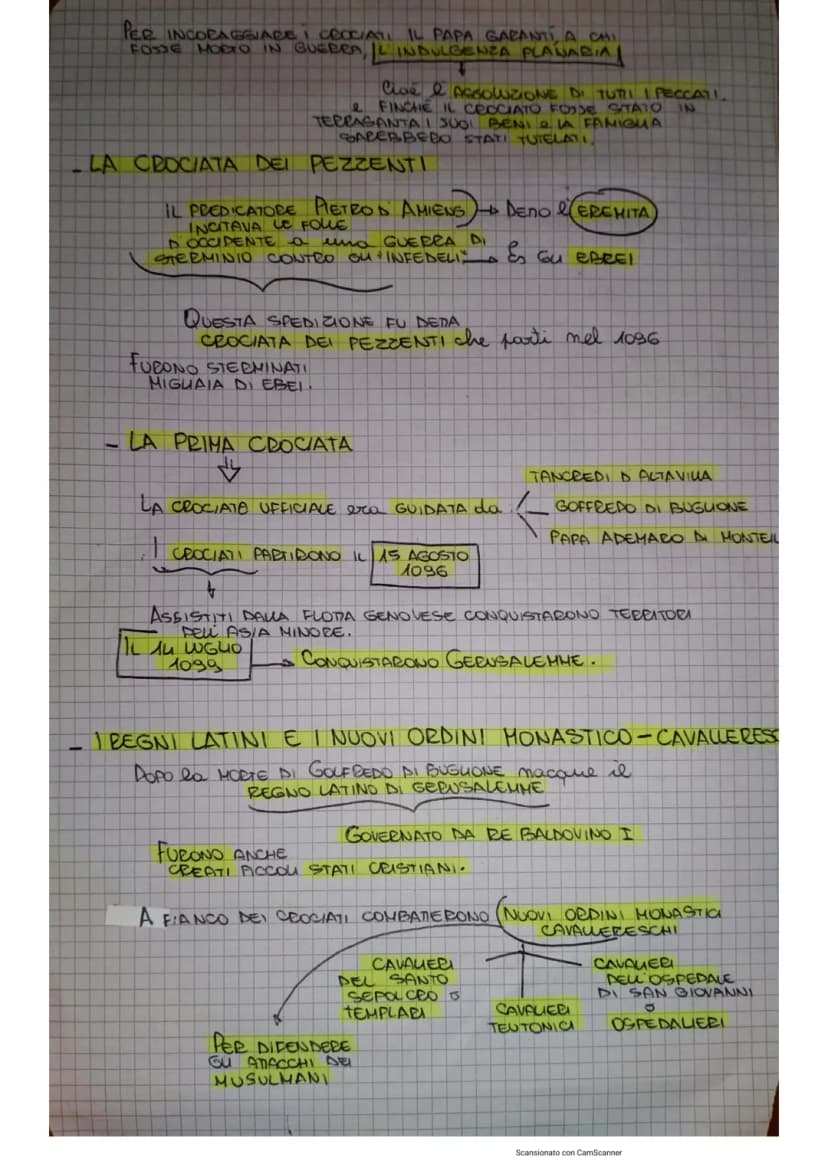 PER INCORAGGIARE I CROCIATI IL PAPA GARANTÌ A CHI
FOSSE MORTO IN GUERRA, L'INDULGENZA PLANARIA
Cioè l'ASSOLUZIONE DI TUTI I PECCATI.
e FINCHÈ IL CROCIATO FOSSE STATO IN
TERRASANTA I SUOI BENI e LA FAMIGLIA
SAREBBERO STATI TUTELATI.
- LA CROCIATA DEI PEZZENTI
IL PREDICATORE PIETRO D'AMIENS → Detto l'EREMITA
INCITAVA LE FOLLE
D'OCCIDENTE a una GUERRA DI
STERMINIO CONTRO GLI "INFEDELI" → Es GLI EBREI
QUESTA SPEDIZIONE FU DETTA
CROCIATA DEI PEZZENTI che partì nel 1096
FURONO STERMINATI
MIGLIAIA DI EBEI.
- LA PRIMA CROCIATA
TANCREDI D'ALTAVILLA
LA CROCIATA UFFICIALE era GUIDATA da GOFFREDO DI BUGLIONE
PAPA ADEMARO DI MONTEIL
I CROCIATI PARTIRONO IL 15 AGOSTO
1096
ASSISTITI DALLA FLOTTA GENOVESE CONQUISTARONO TERRITORI
DELL'ASIA MINORE.
IL 14 LUGLIO
1099 → CONQUISTARONO GERUSALEMME.
- I REGNI LATINI E I NUOVI ORDINI MONASTICO-CAVALLERESC
DOPO la MORTE DI GOLFREDO DI BUGLIONE nacque il
REGNO LATINO DI GERUSALEMME
GOVERNATO DA RE BALDOVINO I
FURONO ANCHE
CREATI PICCOLI STATI CRISTIANI.
A FIANCO DEI CROCIATI COMBATTERONO NUOVI ORDINI MONASTICI
CAVALLERESCHI
CAVALIERI
DEL SANTO
SEPOLCRO o
TEMPLARI
CAVALIERI
TEUTONICI
CAVALIERI
DELL'OSPEDALE
DI SAN GIOVANNI
o
OSPEDALIERI
PER DIFENDERE
GLI ATTACCHI DEI
MUSULMANI
Scansionato con CamScanner